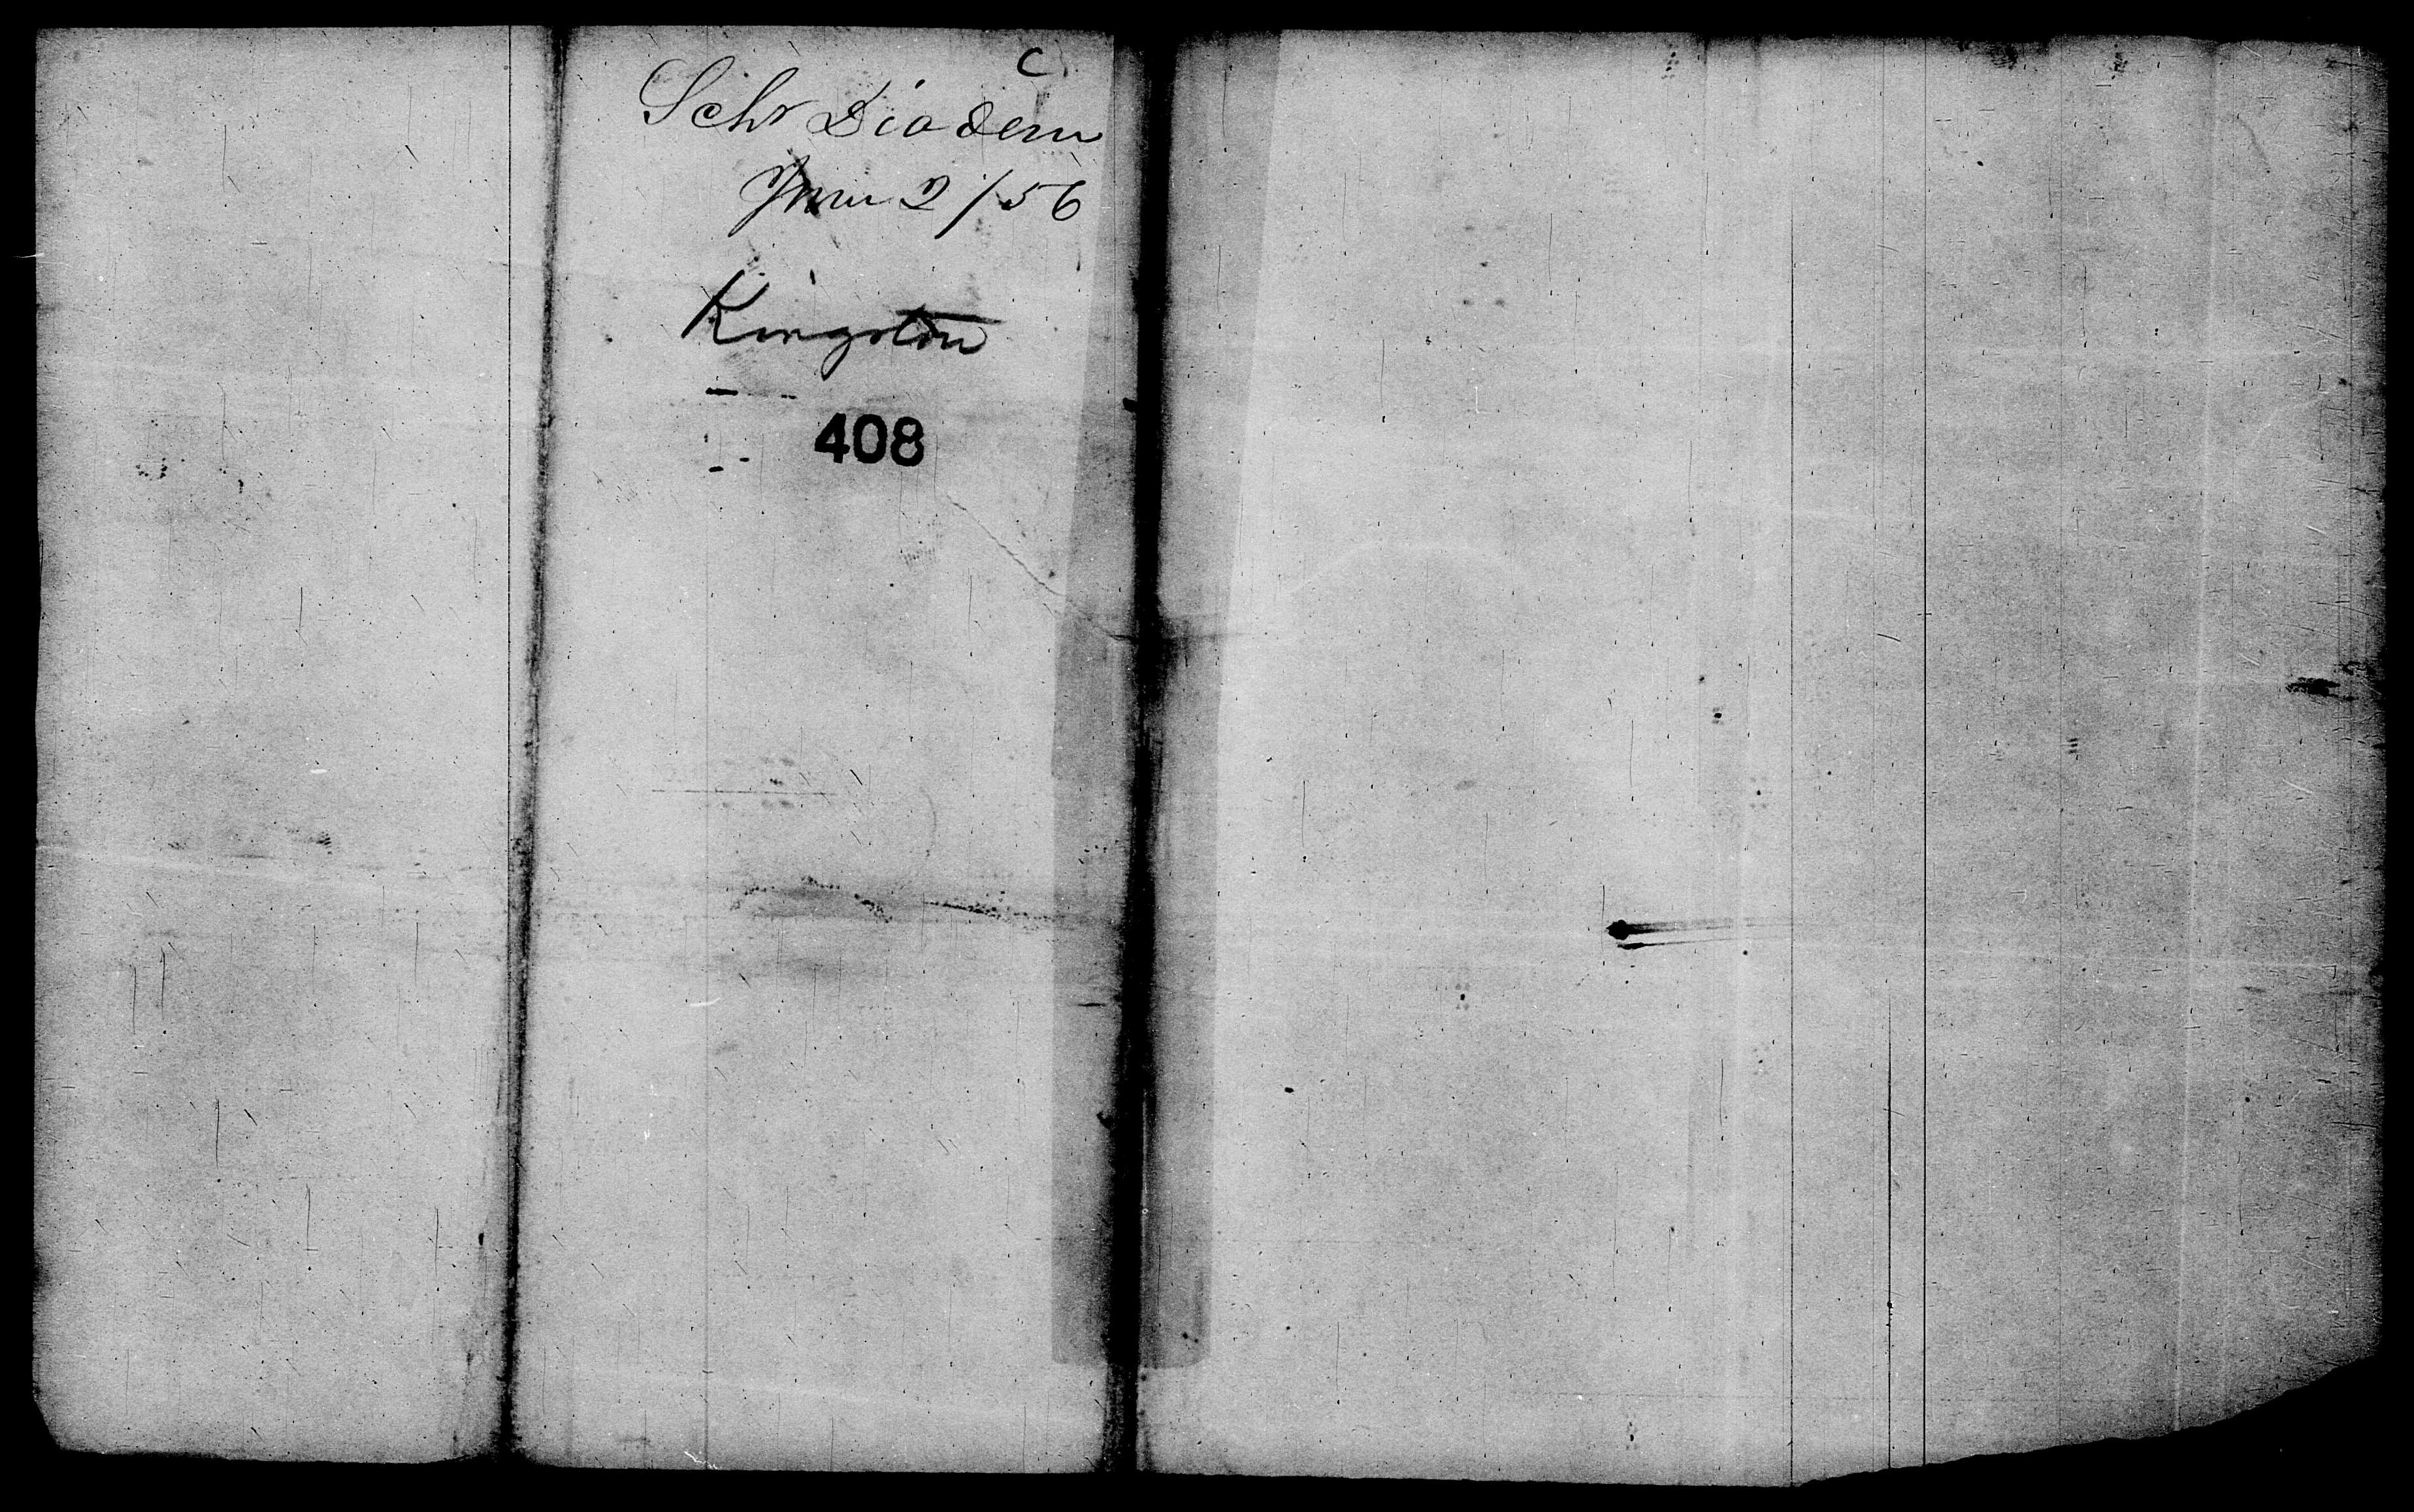 C
Schr Diadem
June 2/56
Kingston
408